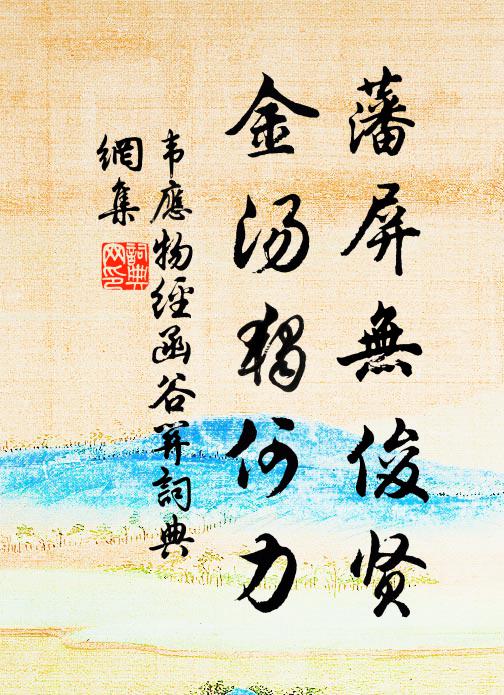 藩屏無俊贤
金汤獨何力
韦應物經函谷关詞典
網集
詞典
网印